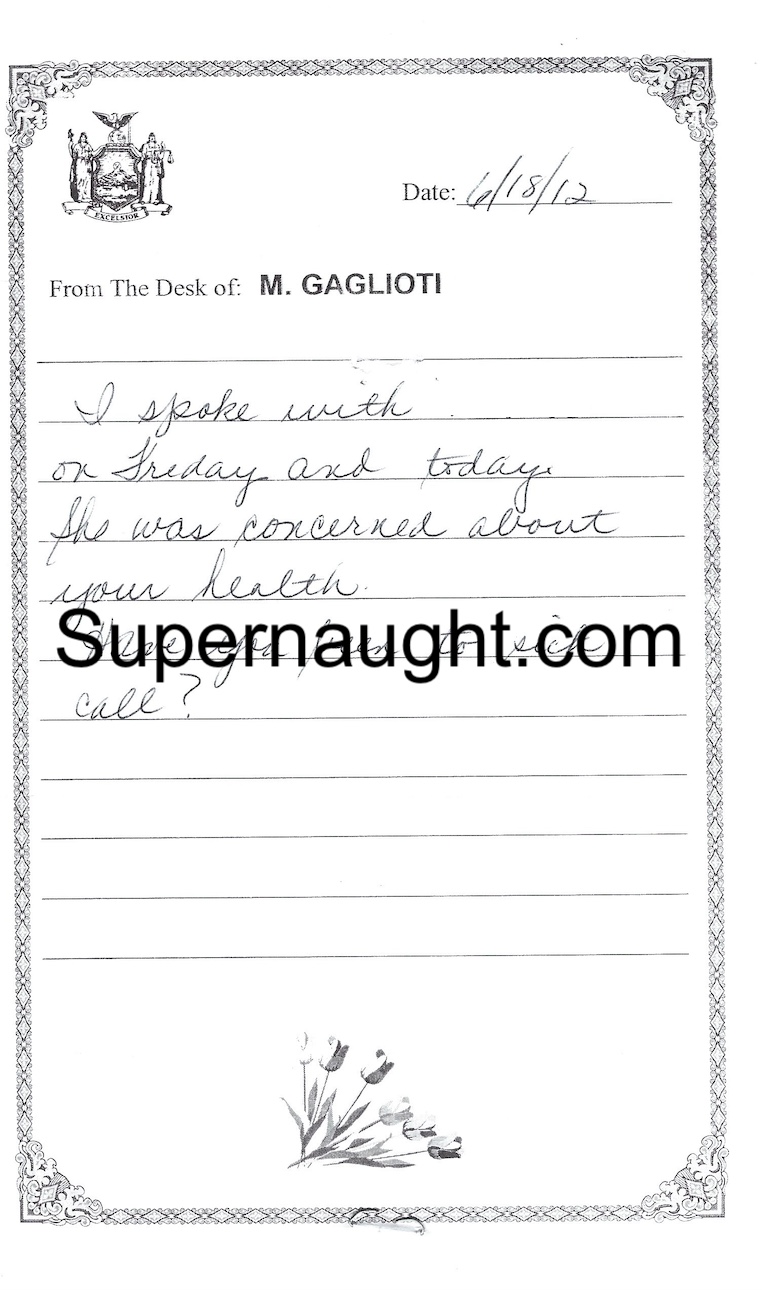 EXCELSIOR
Date: 6/18/12
From The Desk of: M. GAGLIOTI
I spoke with
on Freday and today.
She was concerned about
your health.
Have you been to sick
Supernaught.com
call?